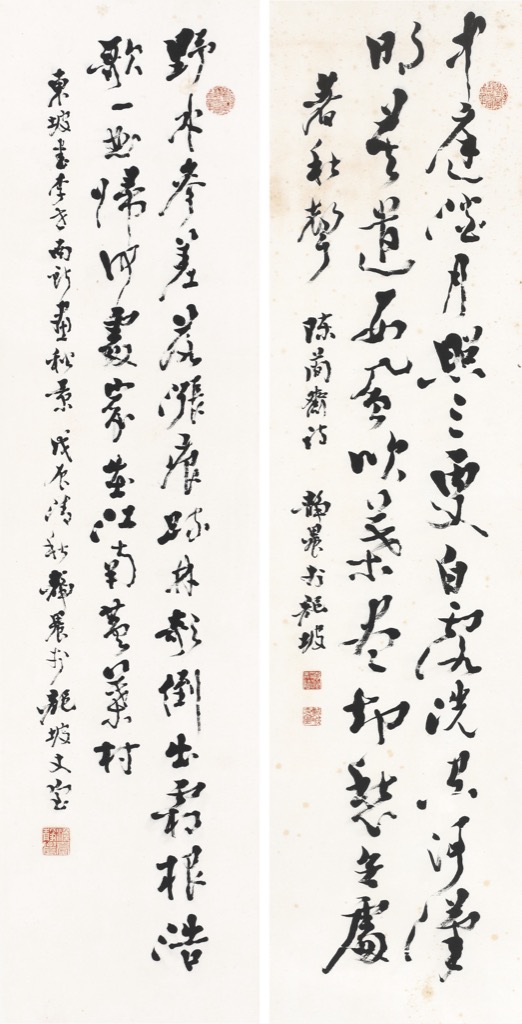 中庭澹月照三更白露洗空河漢
明莫遣西風吹葉盡却愁無處
著秋聲 陳簡齋詩 靜農於龍坡
野水參差落漲痕疏林欹倒出霜根浩
歌一曲歸何處家在江南黃葉村
東坡書李世南所畫秋景 戊辰清秋靜農於龍坡丈室